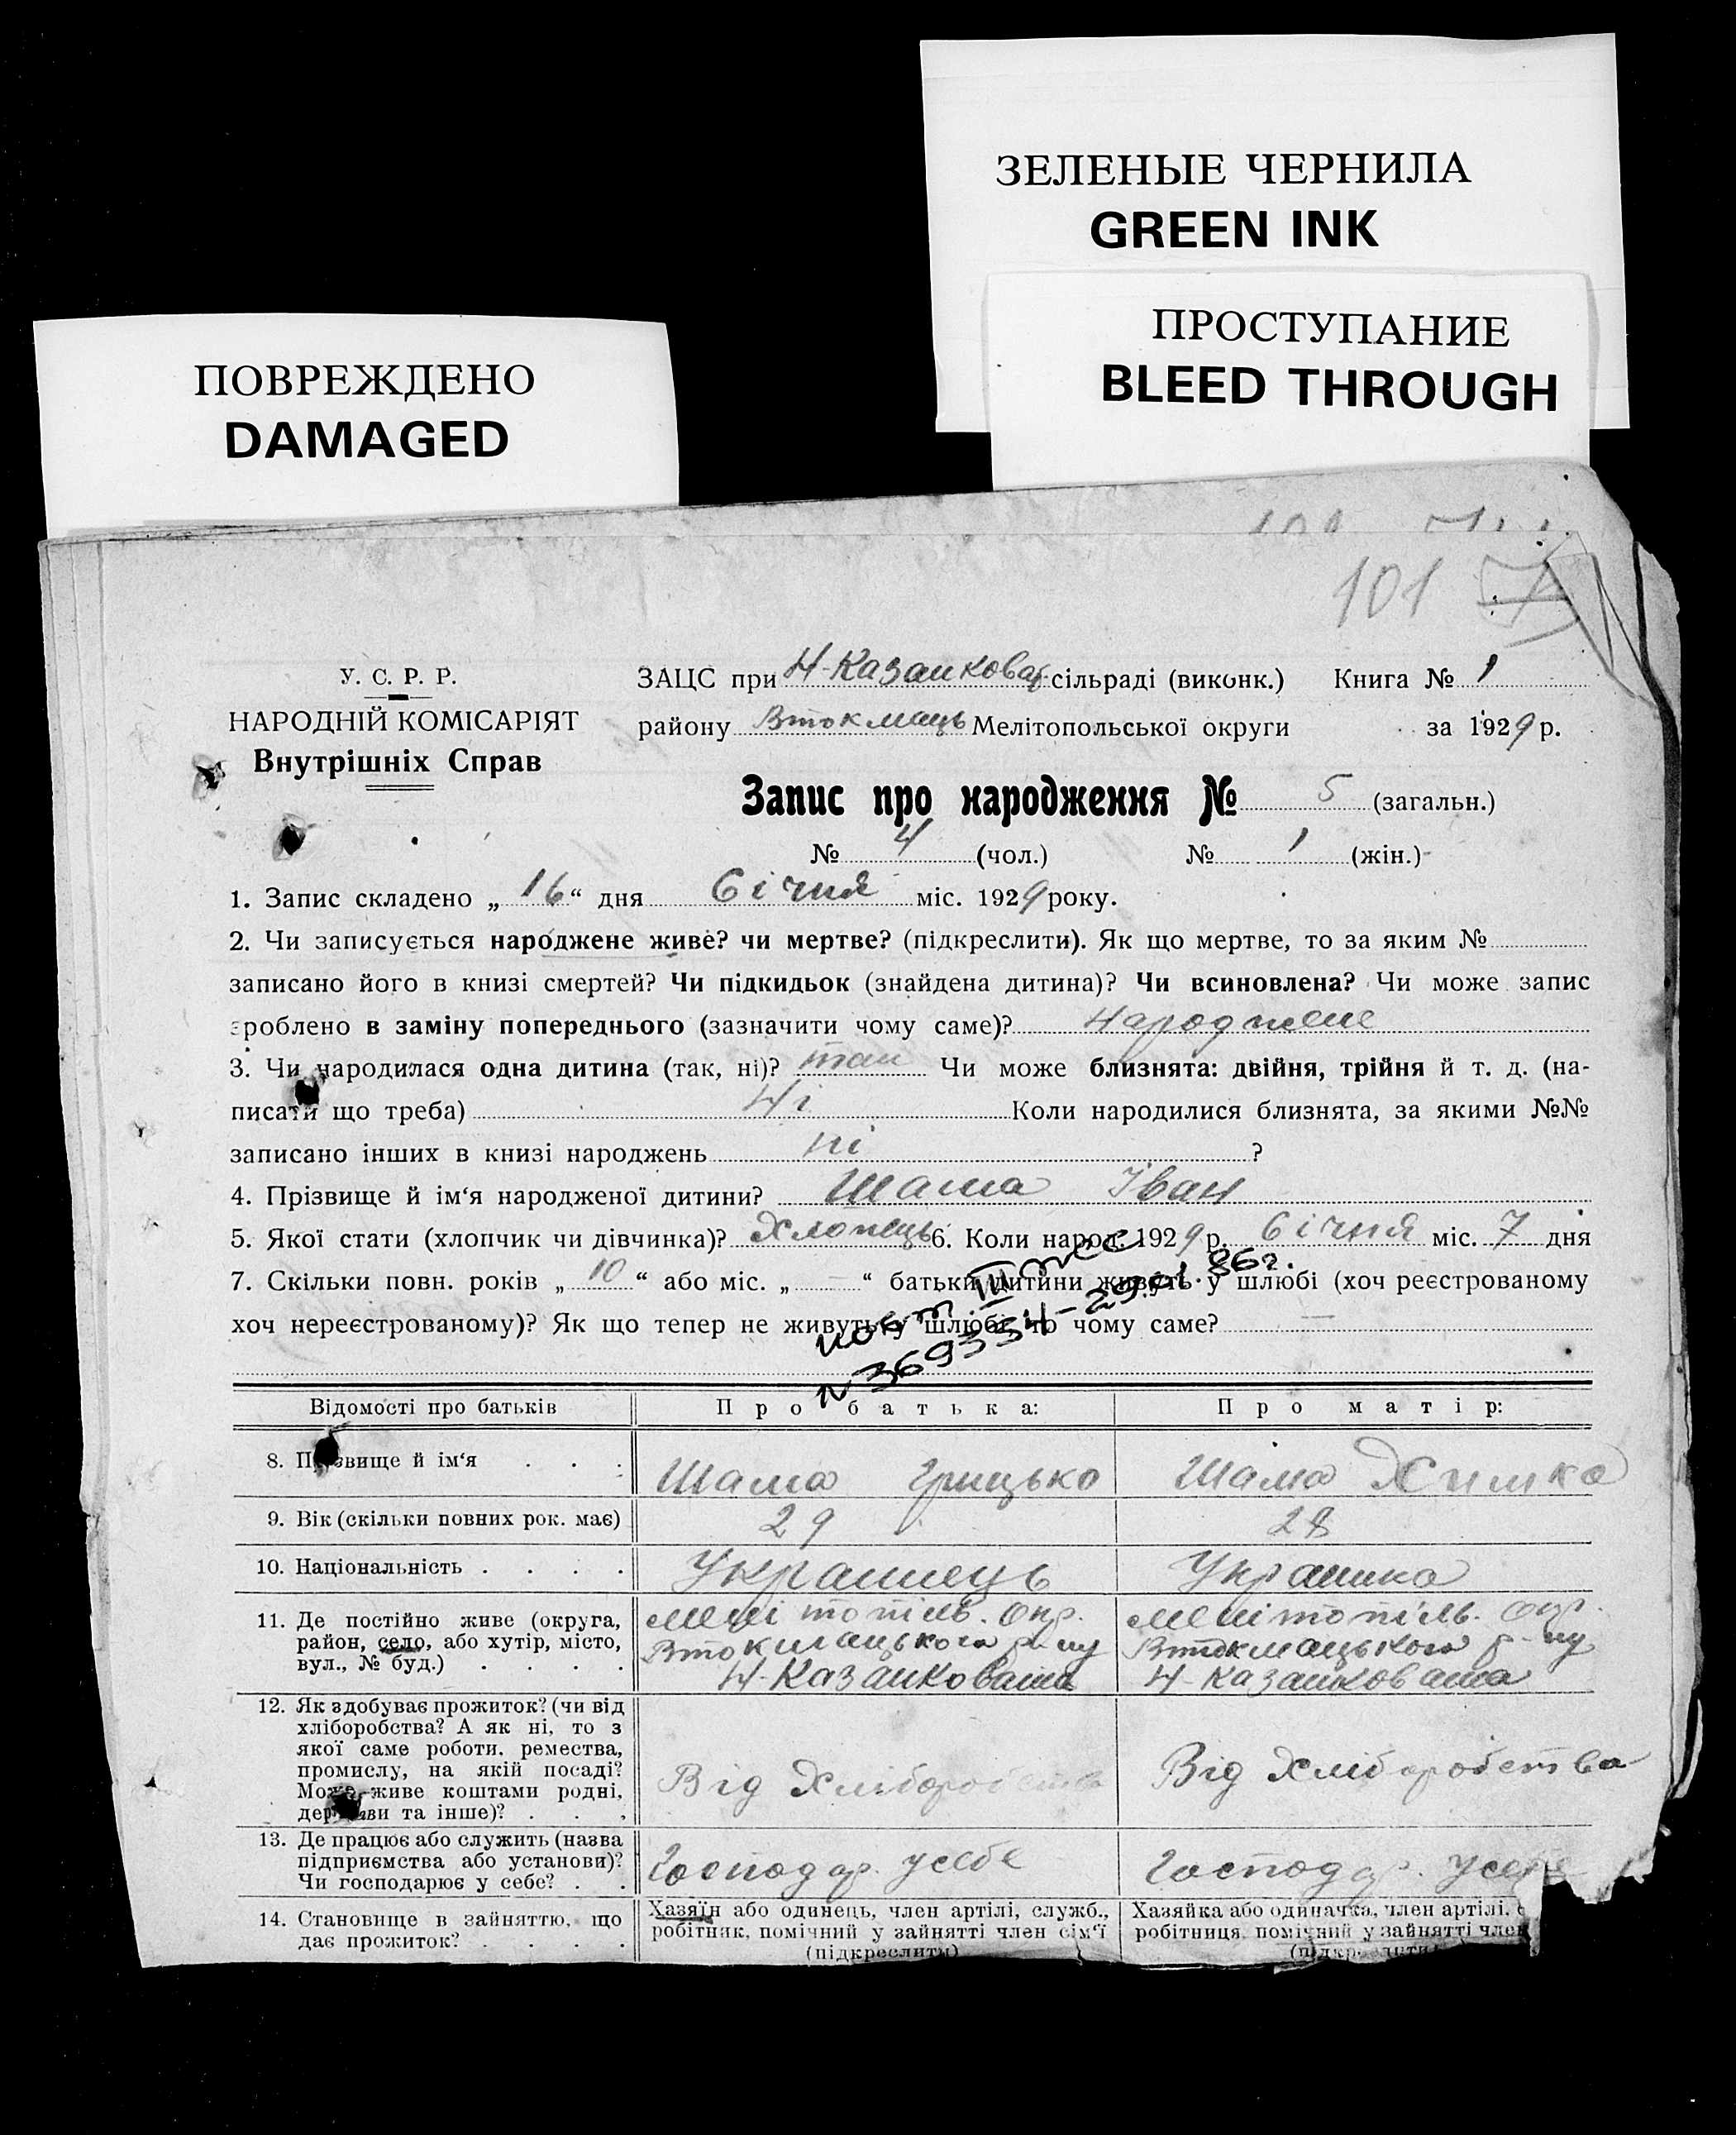 ЗЕЛЕНЫЕ ЧЕРНИЛА
GREEN INK
ПРОСТУПАНИЕ
BLEED THROUGH
ПОВРЕЖДЕНО
DAMAGED
101 7
У. С. Р. Р.
НАРОДНІЙ КОМІСАРІЯТ
Внутрішніх Справ
ЗАЦС при Н-Казанковат. сільраді (виконк.) Книга № 1
району Втокмаць Мелітопольської округи за 1929 р.
Запис про народження № 5 (загальн.)
№ 4 (чол.) № 1 (жін.)
1. Запис складено „ 16 “ дня Січня міс. 1929 року.
2. Чи записується народжене живе? чи мертве? (підкреслити). Як що мертве, то за яким №
записано його в книзі смертей? Чи підкидьок (знайдена дитина)? Чи всиновлена? Чи може запис
зроблено в заміну попереднього (зазначити чому саме)? Народжене
3. Чи народилася одна дитина (так, ні)? так Чи може близнята: двійня, трійня й т. д. (на-
писати що треба) Ні Коли народилися близнята, за якими №№
записано інших в книзі народжень ні ?
4. Прізвище й ім'я народженої дитини? Шама Іван
5. Якої стати (хлопчик чи дівчинка)? Хлопець 6. Коли народ. 1929 р. Січня міс. 7 дня
7. Скільки повн. років „ 10 “ або міс. „ — “ батьки дитини живуть у шлюбі (хоч реєстрованому
хоч нереєстрованому)? Як що тепер не живуть у шлюбі, то чому саме? —
повт III же
№ 369334-29.01.86г.
Відомості про батьків Про батька: Про матір:
8. Прізвище й ім'я . . . Шама Грицько Шама Химка
9. Вік (скільки повних рок. має) 29 28
10. Національність . . . . Українець Українка
11. Де постійно живе (округа, район, село, або хутір, місто, вул., № буд.) . . . .
Мелітопіль. Окр.
Втокмацького р-ну
Н-Казанковата
Мелітопіль. Окр.
Втокмацького р-ну
Н-Казанковата
12. Як здобуває прожиток? (чи від
хліборобства? А як ні, то з
якої саме роботи, ремества,
промислу, на якій посаді?
Може живе коштами родні,
держави та інше)? . . .
Від Хліборобства Від Хліборобства
13. Де працює або служить (назва
підприємства або установи)?
Чи господарює у себе? . .
Господар. усебе Господар. усебе
14. Становище в зайняттю, що
дає прожиток? . . . .
Хазяїн або одинець, член артілі, служб.,
робітник, помічний у зайнятті член сім'ї
(підкреслити)
Хазяйка або одиначка, член артілі,
робітниця, помічний у зайнятті член
(підкреслити)